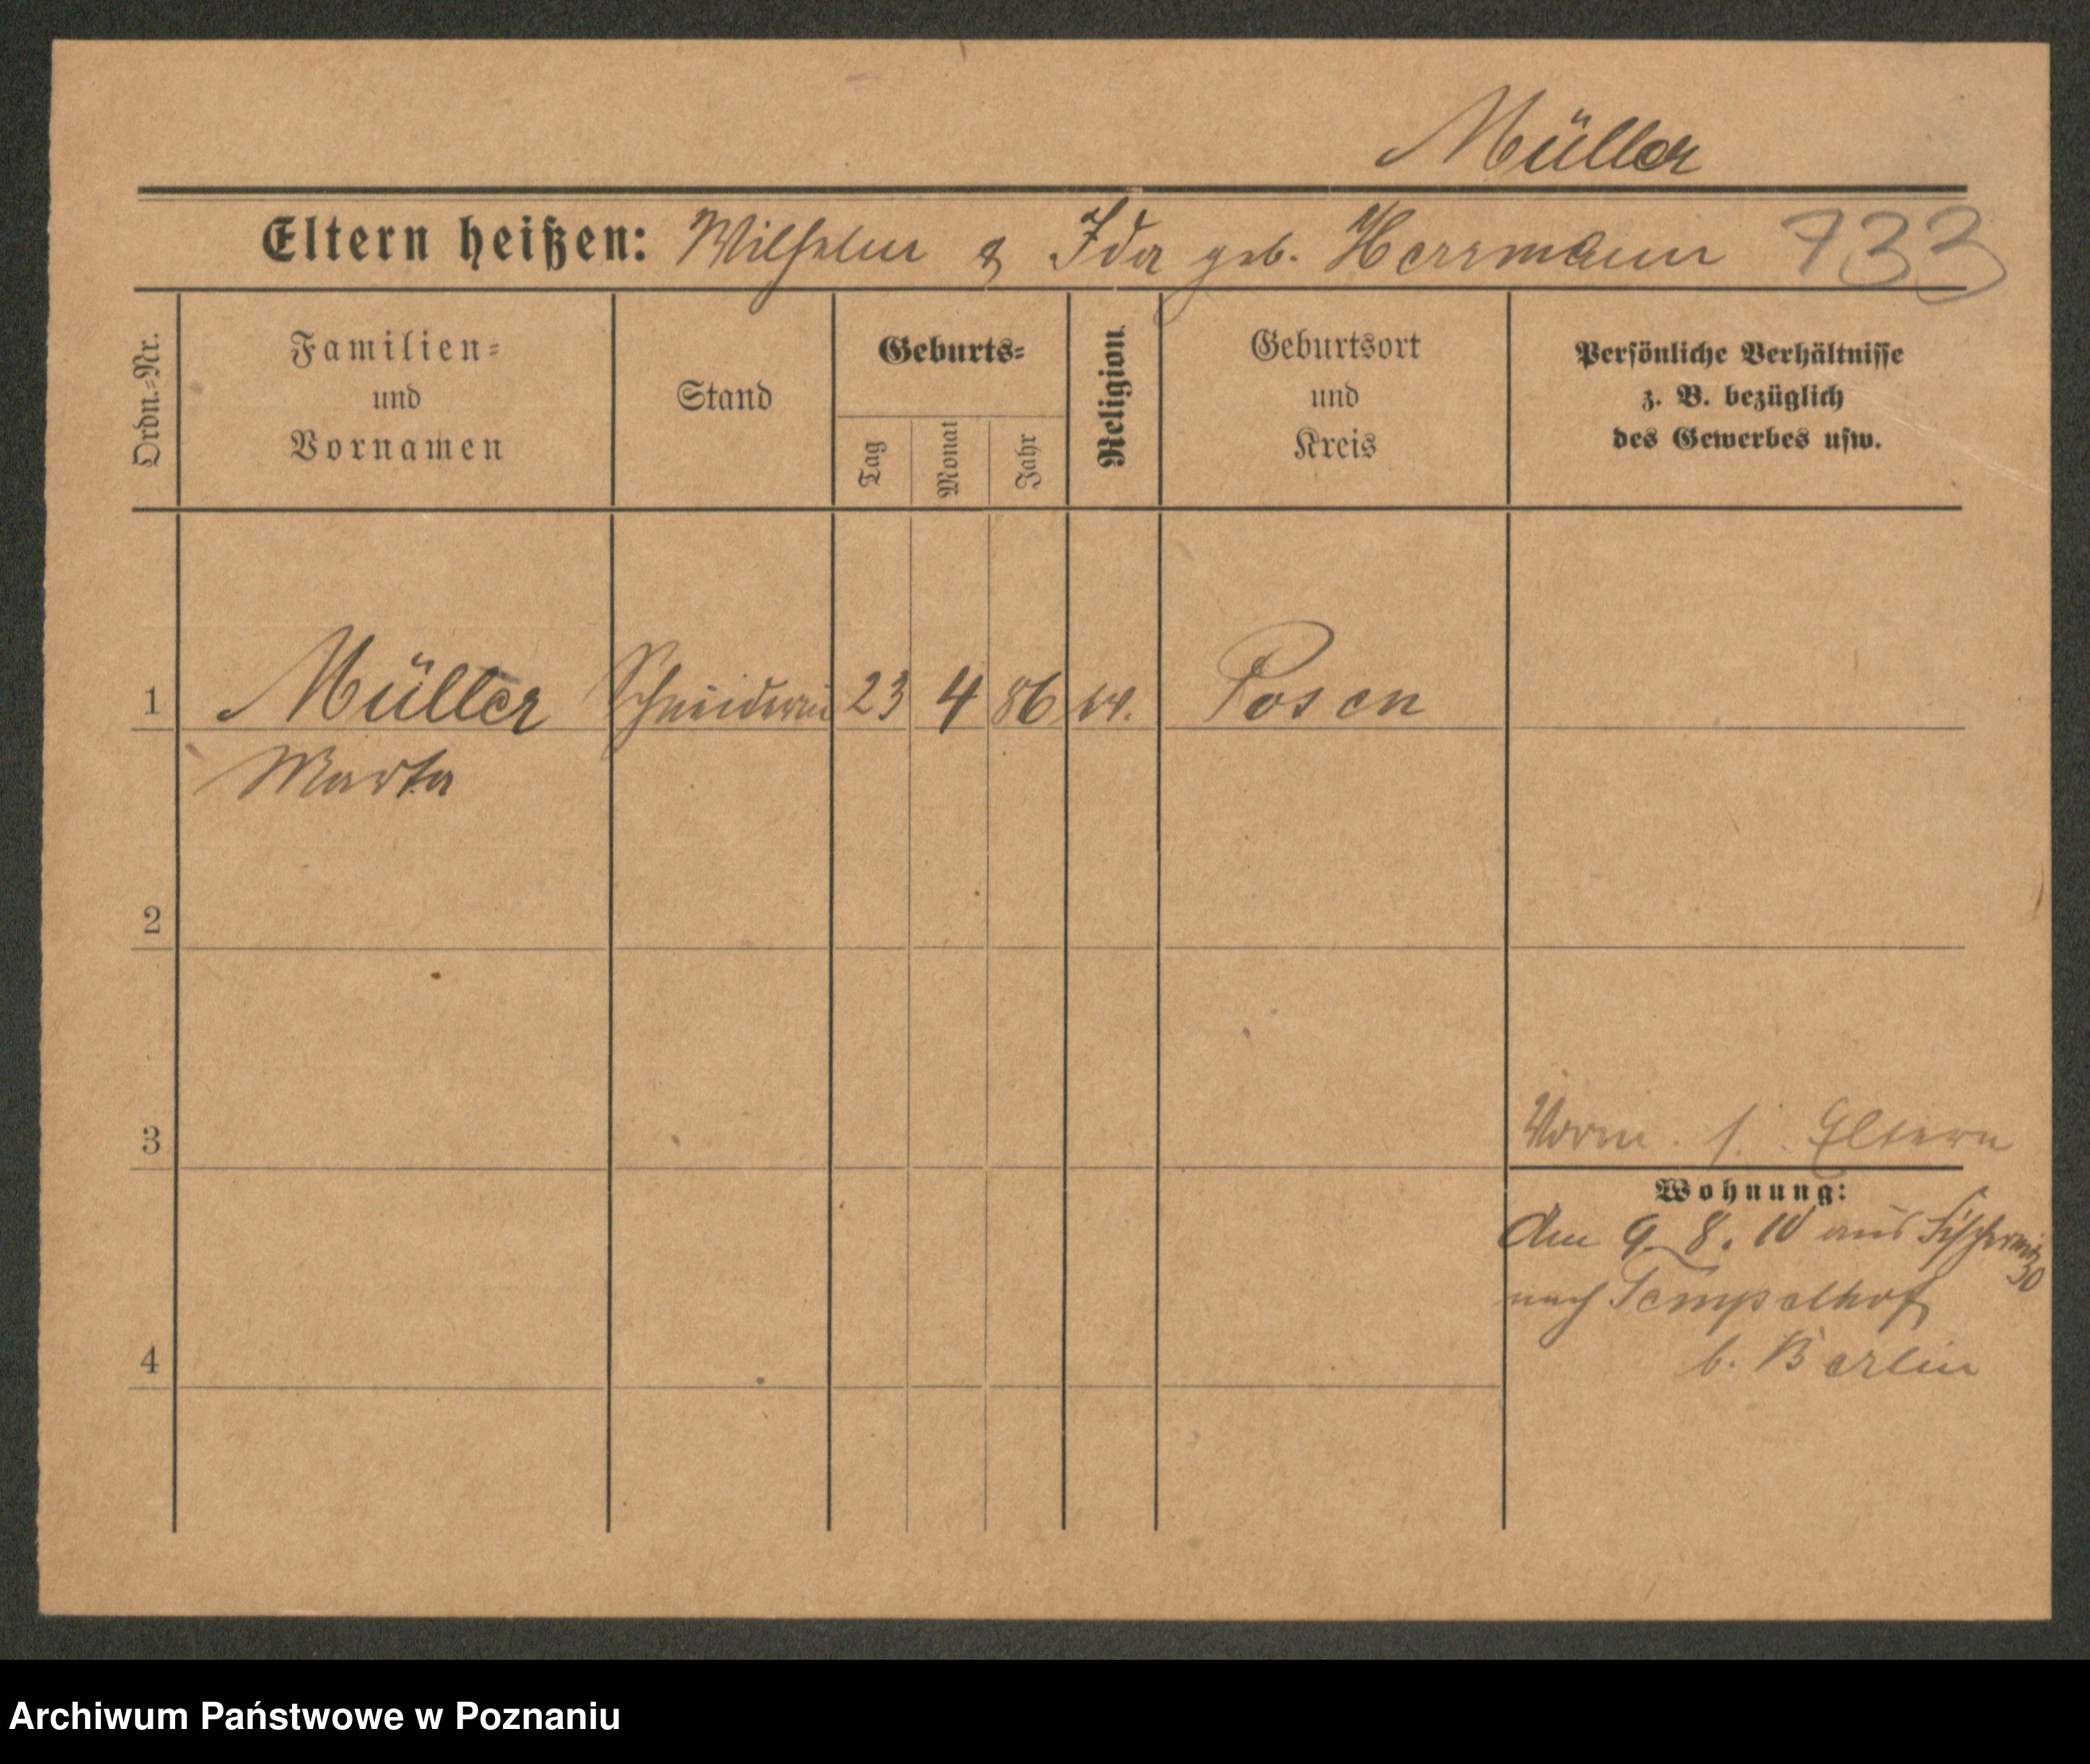 Müller
Eltern heißen: Wilhelm & Ida geb. Herrmann 733
Ordn.-Nr.
Familien- und Vornamen
Stand
Geburts-
Tag
Monat
Jahr
Religion
Geburtsort und Kreis
Persönliche Verhältnisse z. B. bezüglich des Gewerbes usw.
1 Müller Schneiderin 23 4 86 ev. Posen
Marta
2
3
Vorm. s. Eltern
Wohnung:
Am 9. 8. 10 aus 30
nach Tempelhof
b. Berlin
4
Archiwum Państwowe w Poznaniu